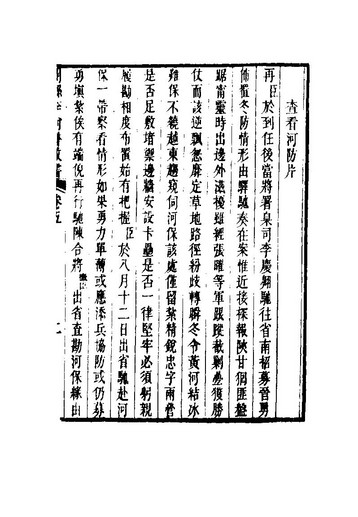 查看河防片
再臣於到任後當將署臬司李慶翱馳往省南招募晉勇
佈置冬防情形由驛馳奏在案惟近接探報陝甘倡匪盤
踞甯靈時出邊外滋擾雖經張曜等軍嚴蹤截剿疊獲勝
仗而該逆飄忽靡定草地路徑紛歧轉瞬冬令黃河結冰
難保不繞越東趨窺伺河保該處僅留業精銳忠字兩營
是否足敷堵禦邊牆安設卡壘是否一律堅牢必須躬親
履勘相度布置始有把握臣於八月十二日出省馳赴河
保一帶察看情形如果勇力單薄或應添兵協防或仍募
勇填紮俟有端倪再行馳陳合將微臣出省查勘河保緣由
卷五